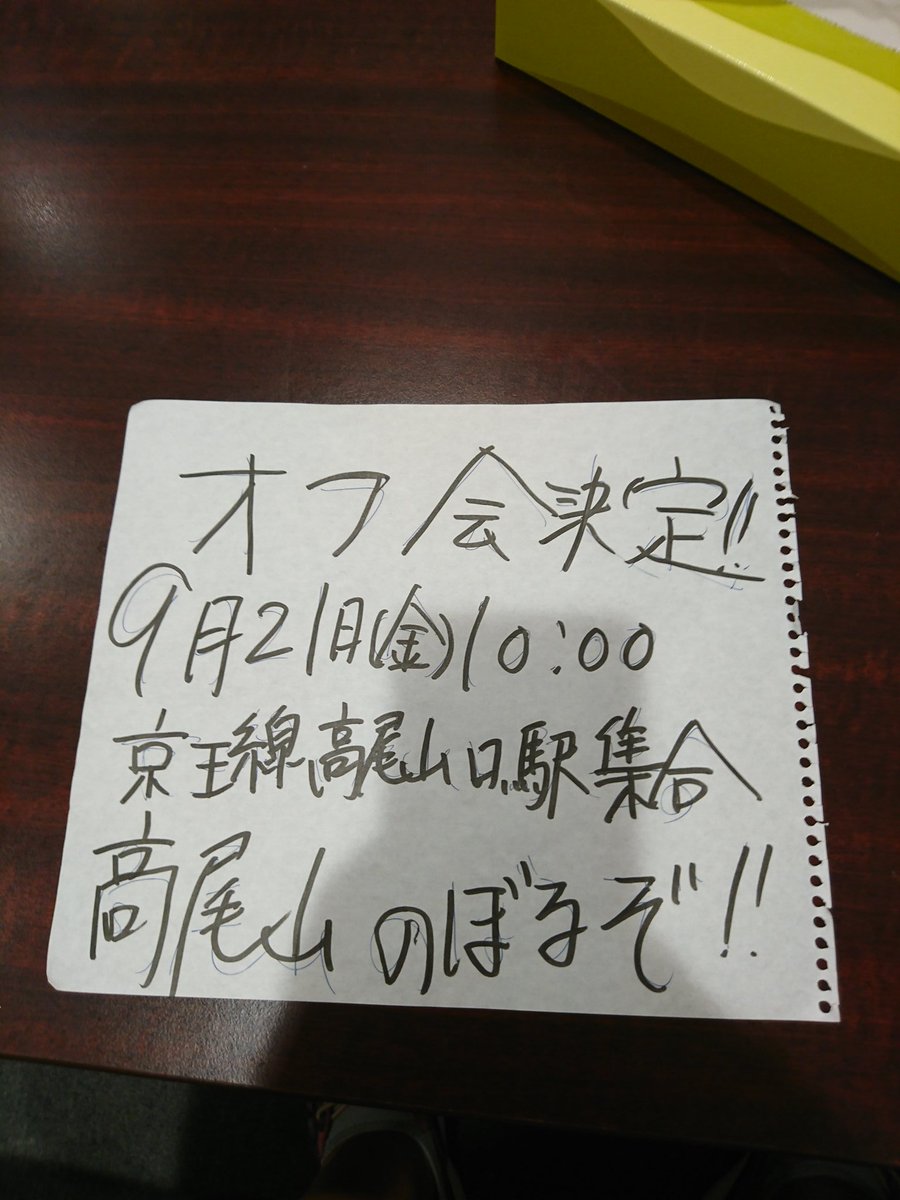 オフ会決定!!
9月21日(金)10:00
京王線高尾山口駅集合
高尾山のぼるぞ!!